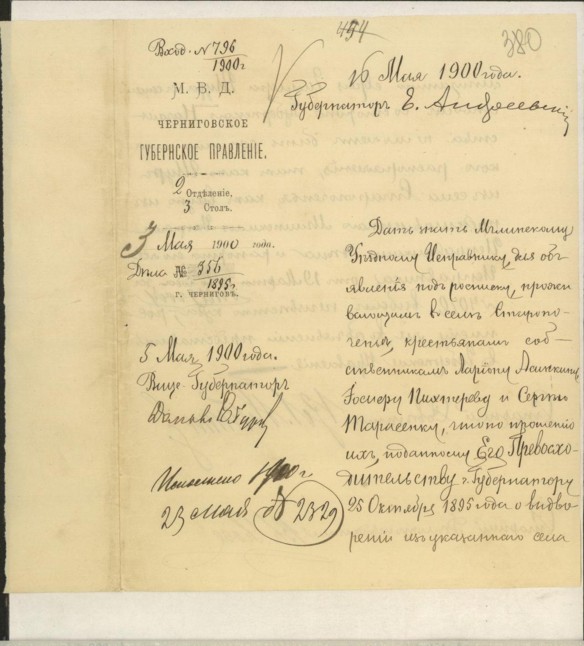 454
380
Вход. № 796
1900 г
М. В. Д.
ЧЕРНИГОВСКОЕ
ГУБЕРНСКОЕ ПРАВЛЕНІЕ.
2 Отдѣленіе.
3 Столъ.
3 Мая 1900 года.
Дѣла № 356
1895 г.
г. ЧЕРНИГОВЪ.
5 Мая 1900 года.
Вице-Губернаторъ
Исполнено 1900 г.
23 мая № 2329
16 Мая 1900 года.
Губернаторъ Е. Андреевскій
Дать знать Мглинскому
Уѣздному Исправнику, для объ
явленія подъ росписку, прожи
вающимъ въ селѣ Старопо-
крестьянамъ соб-
ственникамъ Ларіону
и Сергѣю
Тарасенку, что по прошенію
ихъ, поданному Его Превосхо-
дительству г. Губернатору
25 Октября 1895 года о выдво-
реніи изъ указаннаго села